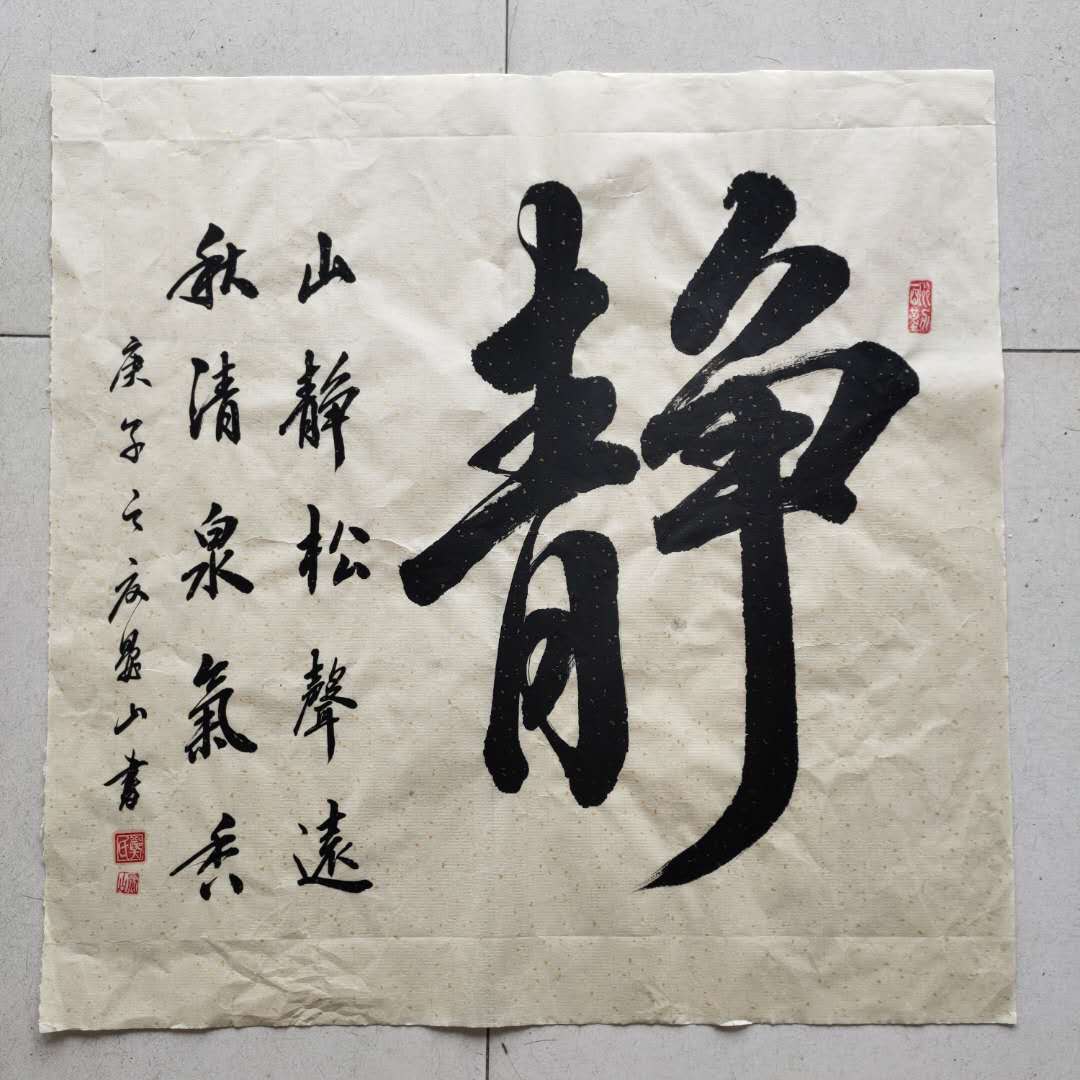 靜
山靜松聲遠
秋清泉氣香
庚子之夏墨山書
鄭氏